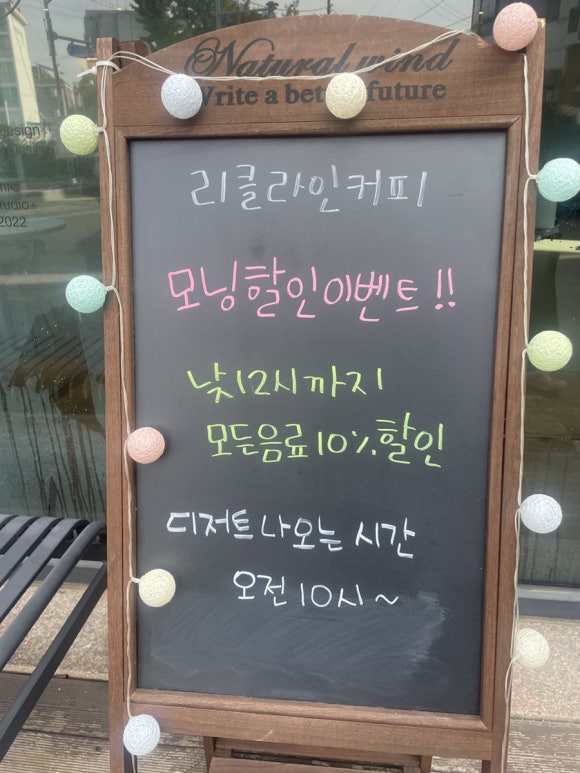 Natural wind
Write a better future
리클라인커피
모닝할인이벤트!!
낮12시까지
모든음료10%할인
디저트나오는 시간
오전10시~
design
studio+
2022